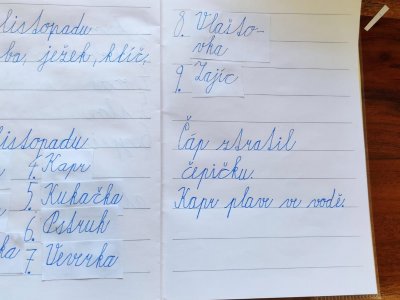 listopadu
ba, ježek, klíč,
listopadu
4. Kapr
5. Kukačka
6. Pstruh
7. Veverka
8. Vlašto-
vka
9. Zajíc
Čáp ztratil
čepičku.
Kapr plave ve vodě.